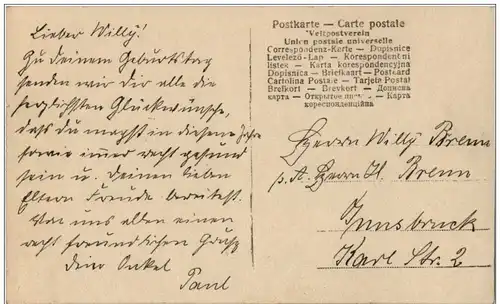 Lieber Willy!
Zu deinem Geburtstag
senden wir dir alle die
herzlichsten Glückwünsche,
dass du magst in diesem Jahre
sowie immer recht gesund
sein u. deinen lieben
Eltern Freude bereitest.
Von uns allen einen
recht freundlichen Gruß
dein Onkel
Paul
Postkarte — Carte postale
Weltpostverein
Union postale universelle
Correspondenz-Karte — Dopisnice
Levelező-Lap — Korespondentní
lístek — Karta korespondencyjna
Dopisnica — Briefkaart — Postcard
Cartolina Postale — Tarjeta Postal
Brefkort — Brevkort — Дописна
карта — Открытое письмо — Карта
кореспонденційна
Herrn Willy Brenn
p. A. Herrn H. Brenn
Innsbruck
Karl Str. 2